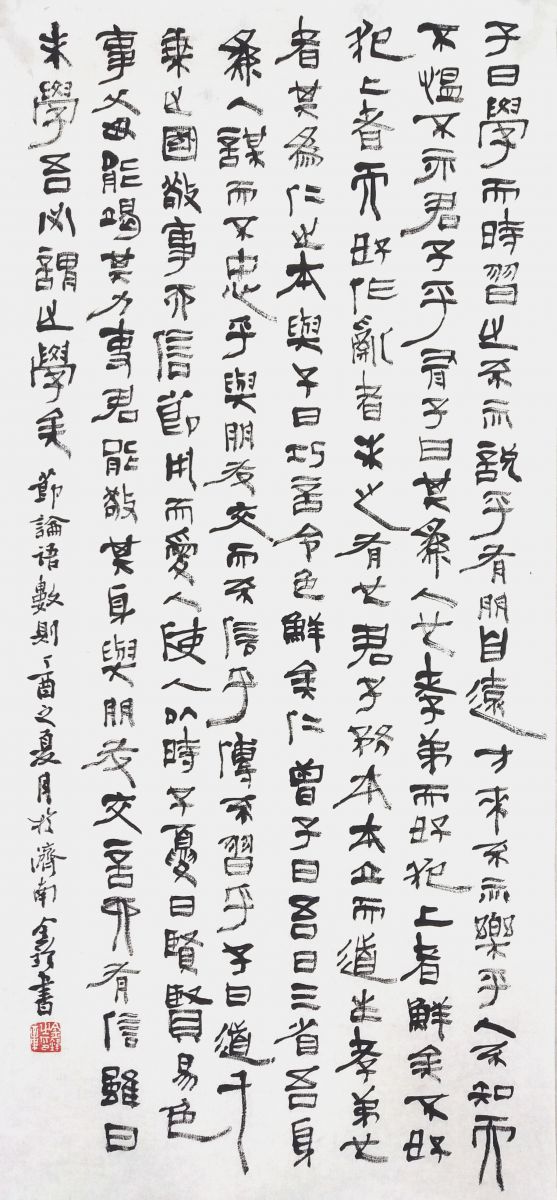 子曰學而時習之不亦說乎有朋自遠方來不亦樂乎人不知而
不慍不亦君子乎有子曰其為人也孝弟而好犯上者鮮矣不好
犯上者而好作亂者未之有也君子務本本立而道生孝弟也
者其為仁之本與子曰巧言令色鮮矣仁曾子曰吾日三省吾身
為人謀而不忠乎與朋友交而不信乎傳不習乎子曰道千
乘之國敬事而信節用而愛人使人以時子夏曰賢賢易色
事父母能竭其力事君能致其身與朋友交言而有信雖曰
未學吾必謂之學矣
節論語數則丁酉之夏月於濟南金書